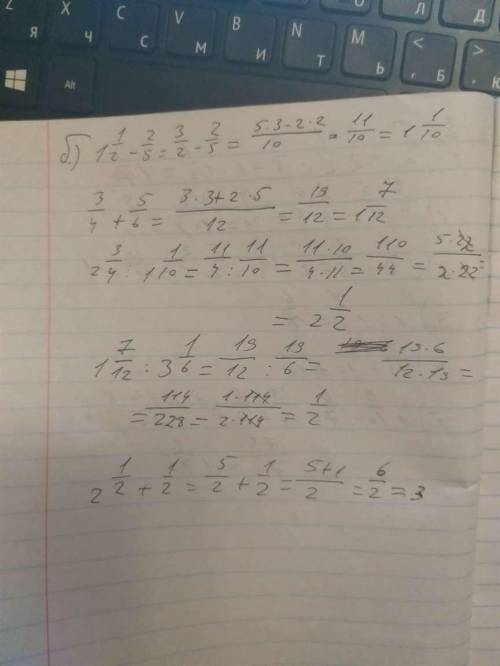 Z Я X Ч C С V М B И N Т M Ь < , Б > . Ю Л Д
Alt
б.) 1 1/2 - 2/5 = 3/2 - 2/5 = (5·3-2·2)/10 = 11/10 = 1 1/10
3/4 + 5/6 = (3·3+2·5)/12 = 19/12 = 1 7/12
2 3/4 : 1 1/10 = 11/4 : 11/10 = (11·10)/(4·11) = 110/44 = (5·22)/(2·22)
= 2 1/2
1 7/12 : 3 1/6 = 19/12 : 19/6 = (19·6)/(12·19) =
= 114/228 = (1·114)/(2·114) = 1/2
2 1/2 + 1/2 = 5/2 + 1/2 = (5+1)/2 = 6/2 = 3